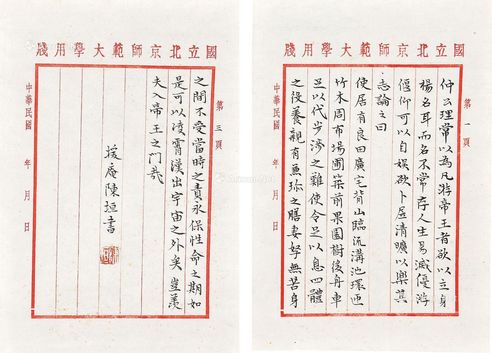 國立北京師範大學用牋
第一頁
仲公理常以為凡游帝王者欲以立身
揚名耳而名不常存人生易滅優游
偃仰可以自娛欲卜居清曠以樂其
志論之曰
使居有良田廣宅背山臨流溝池環匝
竹木周布場圃築前果園樹後舟車
足以代步涉之難使令足以息四體
之役養親有兼珍之膳妻孥無苦身
中華民國 年 月 日
國立北京師範大學用牋
第三頁
之間不受當時之責永保性命之期如
是可以凌霄漢出宇宙之外矣豈羨
夫入帝王之門哉
援庵陳垣書
中華民國 年 月 日